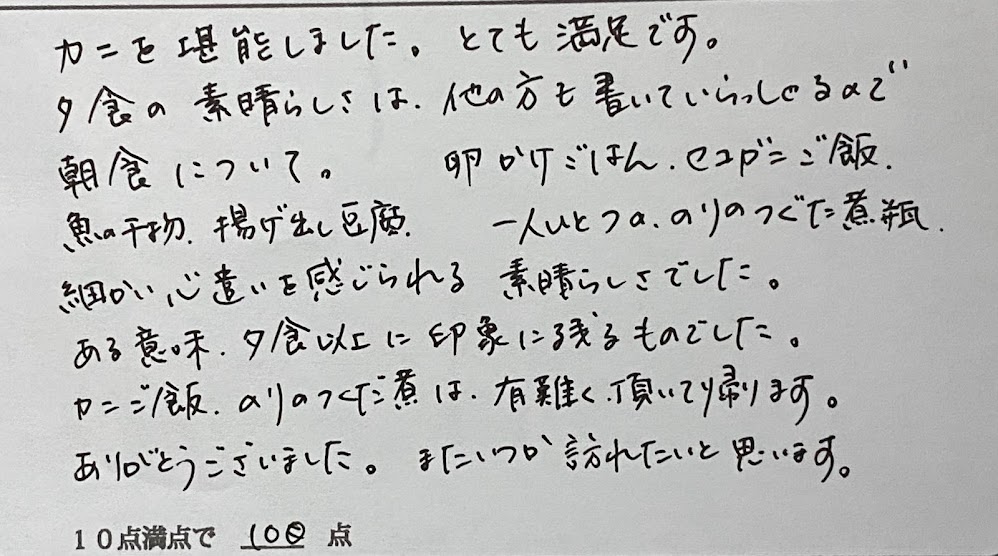 カニを堪能しました。とても満足です。
夕食の素晴らしさは、他の方も書いていらっしゃるので
朝食について。 卵かけごはん、セコガニご飯、
魚の干物、揚げ出し豆腐 一人ひとつの、のりのつくだ煮瓶、
細かい心遣いを感じられる 素晴らしさでした。
ある意味、夕食以上に印象に残るものでした。
カニご飯、のりのつくだ煮は、有難く頂いて帰ります。
ありがとうございました。またいつか訪れたいと思います。
10点満点で 100 点